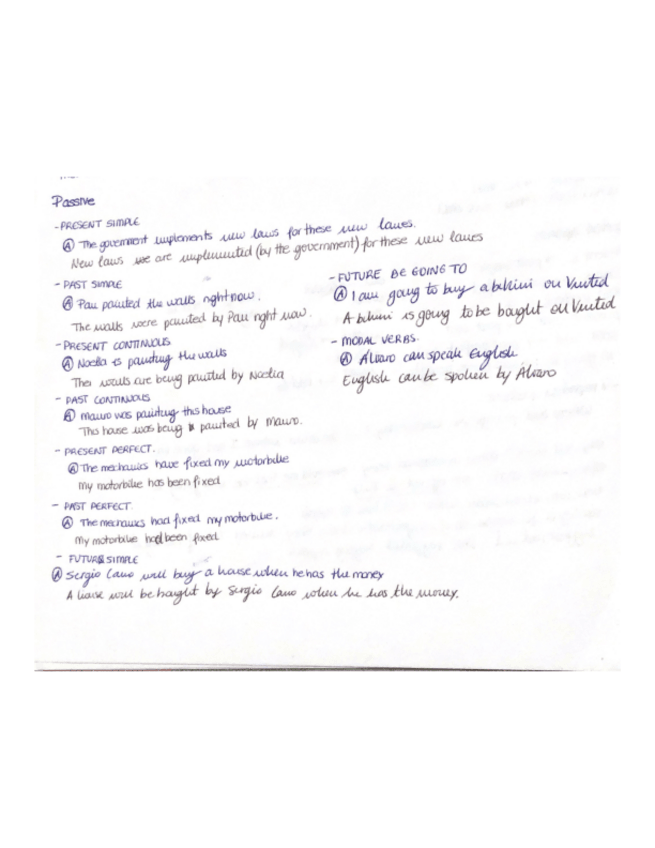 Passive
- PRESENT SIMPLE
Ⓐ The government implements new laws for these new lanes.
New laws are implemented (by the government) for these new lanes
- PAST SIMPLE
Ⓐ Pau painted the walls right now.
The walls were painted by Pau right now.
- PRESENT CONTINUOUS
Ⓐ Noelia is painting the walls
The walls are being painted by Noelia
- PAST CONTINUOUS
Ⓐ Mauro was painting this house
This house was being painted by Mauro.
- PRESENT PERFECT.
Ⓐ The mechanics have fixed my motorbike
My motorbike has been fixed
- PAST PERFECT.
Ⓐ The mechanics had fixed my motorbike.
My motorbike had been fixed
- FUTURE SIMPLE
Ⓐ Sergio Cano will buy a house when he has the money
A house will be bought by Sergio Cano when he has the money.
- FUTURE BE GOING TO
Ⓐ I am going to buy a bikini on Vinted
A bikini is going to be bought on Vinted
- MODAL VERBS.
Ⓐ Álvaro can speak English.
English can be spoken by Álvaro